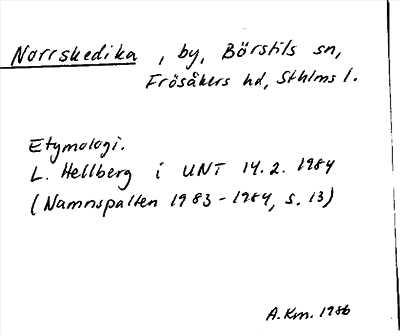 Norrskedika, by, Börstils sn,
Frösåkers hd, Sthlms l.
Etymologi.
L. Hellberg i UNT 14.2.1984
(Namnspalten 1983-1984, s. 13)
A.Km. 1986